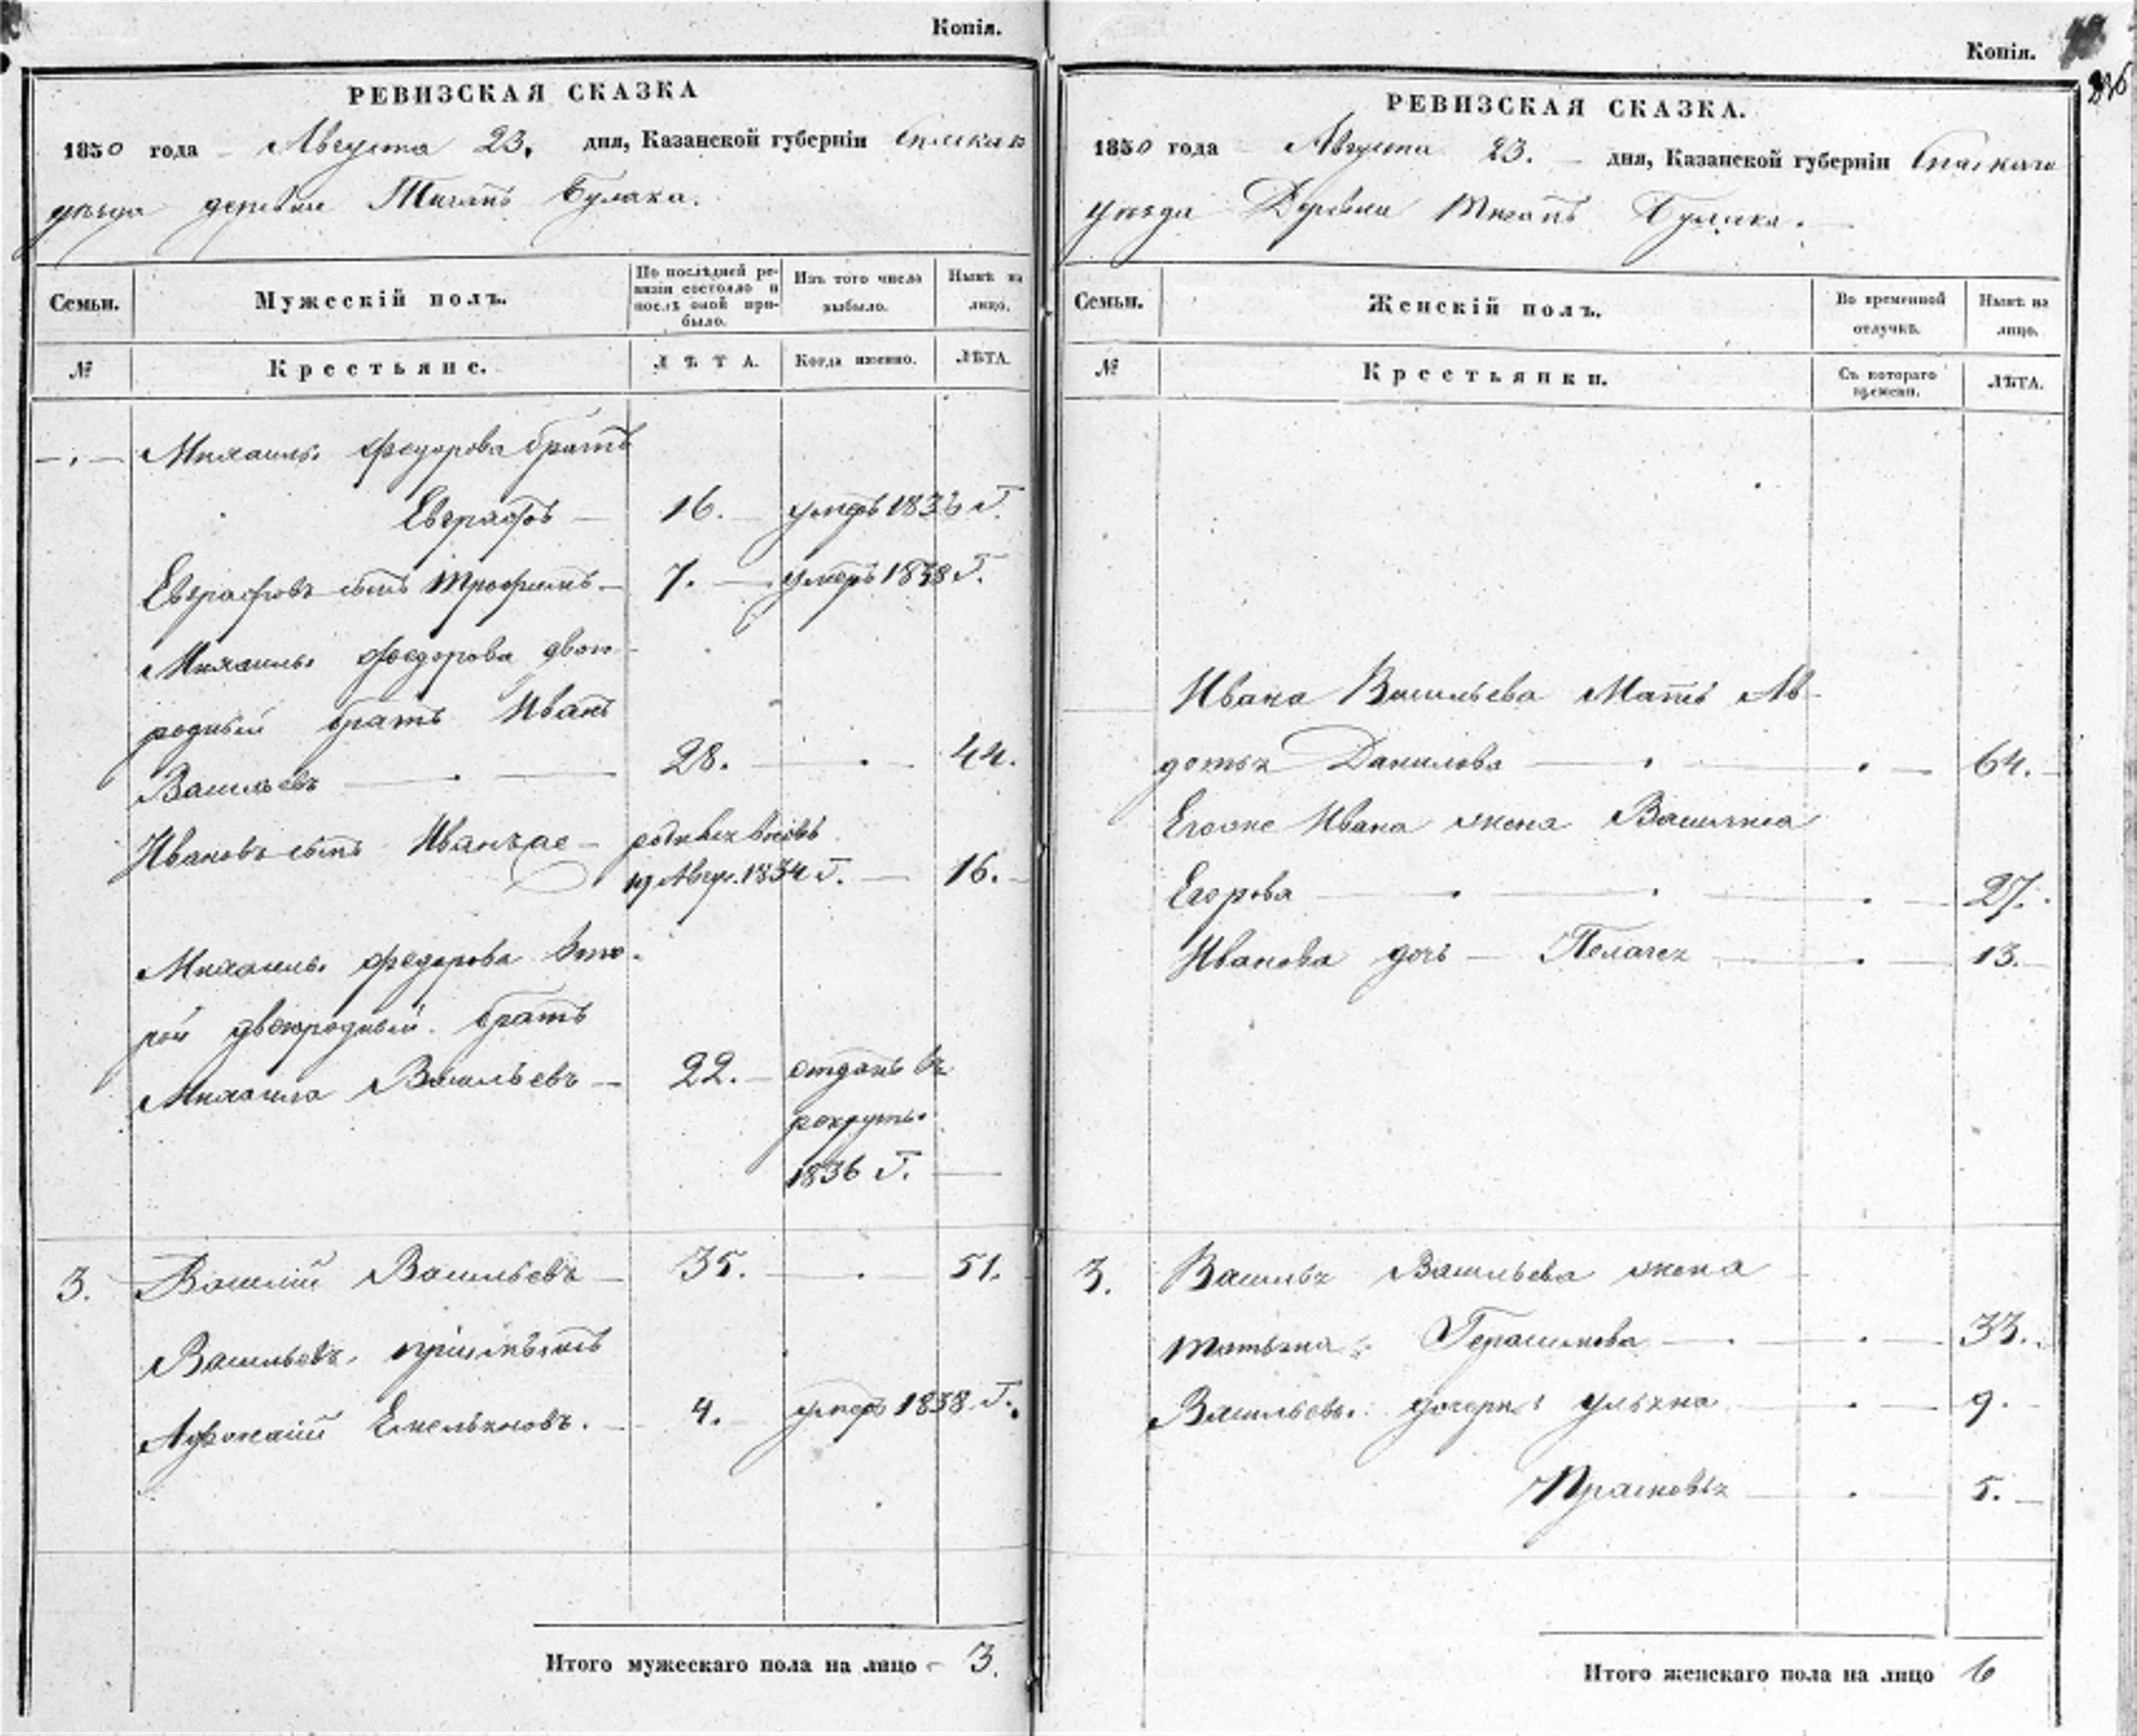 Копія.
РЕВИЗСКАЯ СКАЗКА
1850 года Августа 23, дня, Казанской губерніи Спаскаго
уѣзда деревни Тиганъ Булака.
Семьи.
Мужескій полъ.
По послѣдней ре-
визіи состояло и
послѣ оной при-
было.
Изъ того числа
выбыло.
Нынѣ на
лицо.
№
Крестьяне.
ЛѢТА.
Когда именно.
ЛѢТА.
Михаилы Федорова братъ
Евграфъ — 16. — умеръ 1836 Г.
Евграфовъ сынъ Трофимъ — 7. — умеръ 1838 Г.
Михаилы Федорова двою-
родный братъ Иванъ
Васильевъ — 28. — 44.
Ивановъ сынъ — рожденъ вновь
19 Авгус. 1834 Г. — 16.
Михаилы Федорова вто-
рой двоюродный братъ
Михаила Васильевъ — 22. — отданъ въ
рекруты
1836 Г. —
3. Василій Васильевъ — 35. — 51.
Васильевъ пріимышъ
Афонасій Емельяновъ. — 4. — умеръ 1838 Г.
Итого мужескаго пола на лицо — 3.
Копія.
РЕВИЗСКАЯ СКАЗКА.
1850 года Августа 23. — дня, Казанской губерніи Спаскаго
уѣзда Деревни Тиганъ Булака.
Семьи.
Женскій полъ.
Во временной
отлучкѣ.
Нынѣ на
лицо.
№
Крестьянки.
Съ котораго
времени.
ЛѢТА.
Ивана Васильева Мать Ав-
дотья Данилова — 64. —
Егоже Ивана жена Василиса
Егорова — 27.
Иванова дочь — Пелагея — 13. —
3. Василья Васильева жена
Татьяна Герасимова — 33.
Васильевы дочери Ульяна — 9.
Прасковья — 5. —
Итого женскаго пола на лицо 6